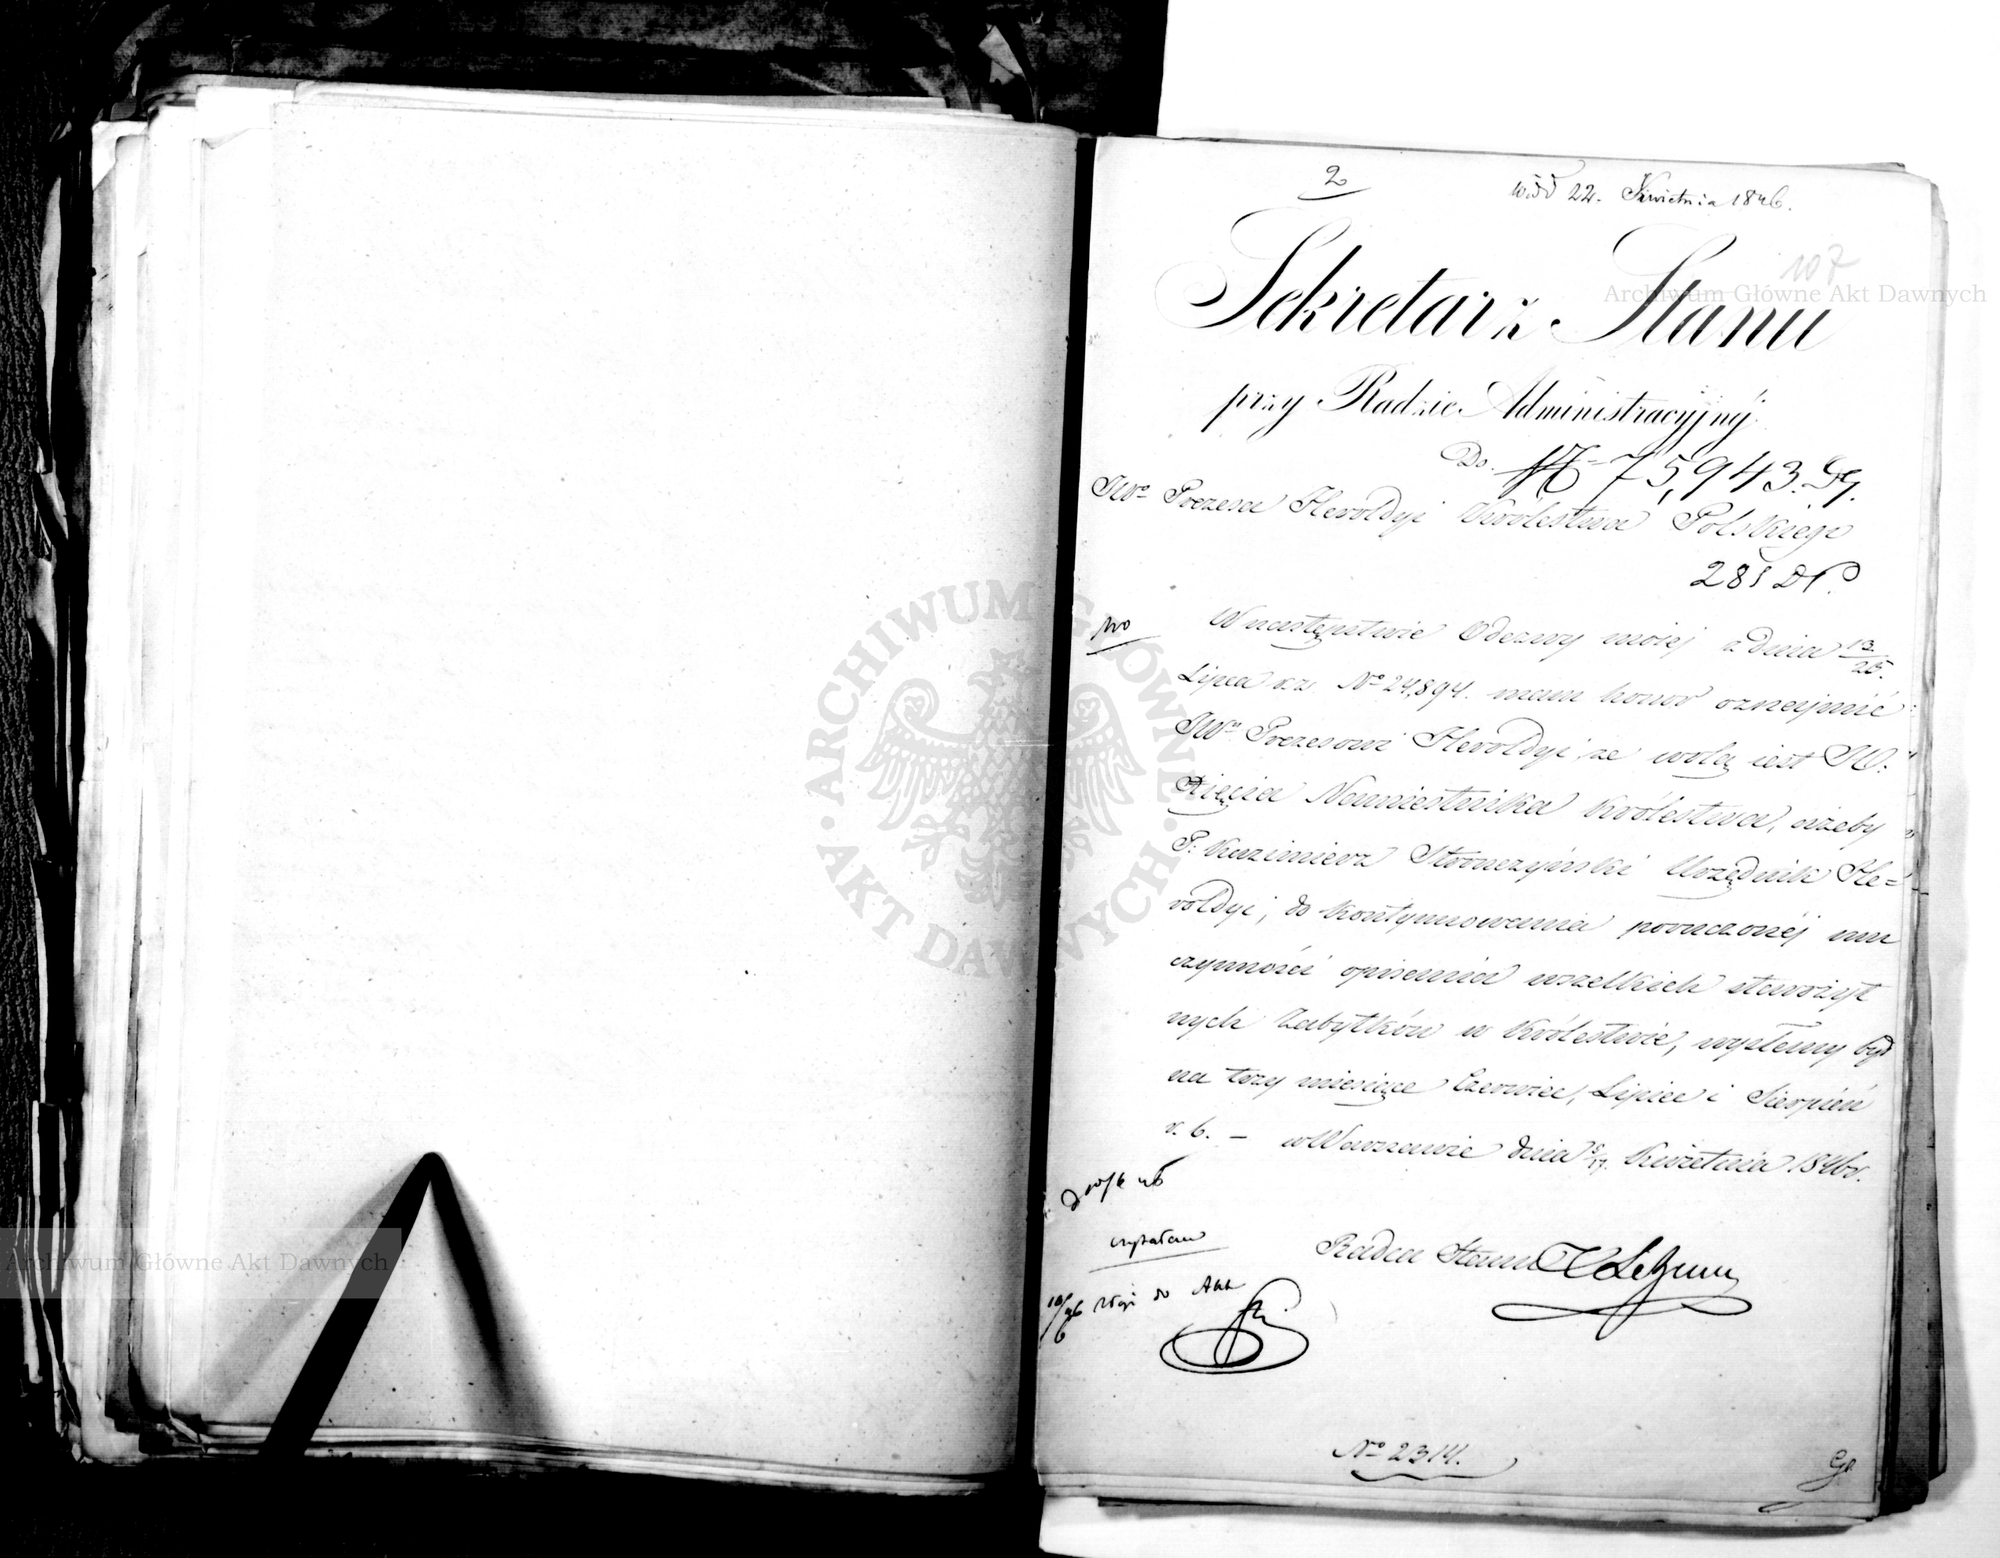 2
wśd 22. Kwietnia 1846.
107
Sekretarz Stanu
przy Radzie Administracyjnéj
Do № 75,943. Dg.
JWo Prezesa Heroldyi Królestwa Polskiego
281 DP.
W następstwie Odezwy mojéj z dnia 13/25.
Lipca r.z. No 24,894. mam honor oznajmić
JWu Prezesowi Heroldyi, że wolą jest JO.
Xięcia Namiestnika Królestwa, ażeby
P. Kazimierz Stronczyński Urzędnik He=
roldyi, do kontynuowania poruczonéj mu
czynności opisania wszelkich starożyt
nych Zabytków w Królestwie, wysłany był
na trzy miesiące Czerwiec, Lipiec i Sierpień
r. b. — w Warszawie dnia 5/17. Kwietnia 1846 r.
czytałem
Radca Stanu
do Akt
No 2314.
Archiwum Główne Akt Dawnych
Archiwum Główne Akt Dawnych
ARCHIWUM GŁÓWNE · AKT DAWNYCH ·